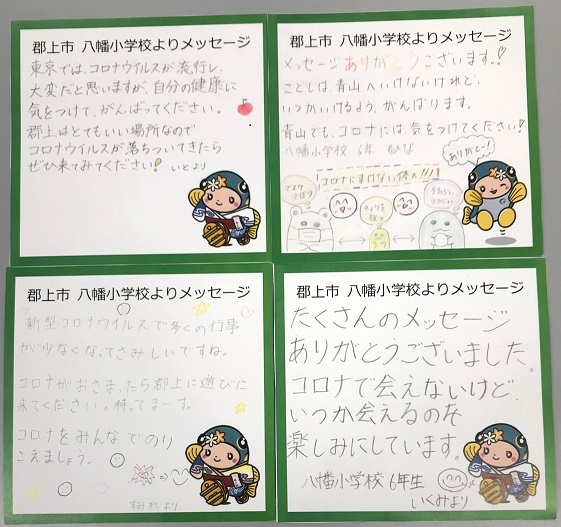 郡上市 八幡小学校よりメッセージ
東京では、コロナウイルスが流行し、
大変だと思いますが、自分の健康に
気をつけて、がんばってください。
郡上はとてもいい場所なので
コロナウイルスが落ちついてきたら
ぜひ来てみてください!
いとより
郡上市 八幡小学校よりメッセージ
メッセージありがとうございます。!
ことしは、青山へいけないけれど、
いつかいけるよう、がんばります。
青山でも、コロナには、気をつけてください!
八幡小学校 6年 ひな
ありがと〜!
コロナにまけない体へ!!!
郡上市 八幡小学校よりメッセージ
新型コロナウイルスで多くの行事
が少なくなってさみしいですね。
コロナがおさまったら郡上に遊びに
来てください。待ってまーす。
コロナをみんなでのり
こえましょう。
すみれより
郡上市 八幡小学校よりメッセージ
たくさんのメッセージ
ありがとうございました。
コロナで会えないけど、
いつか会えるのを
楽しみにしています。
八幡小学校 6年生
いくみより